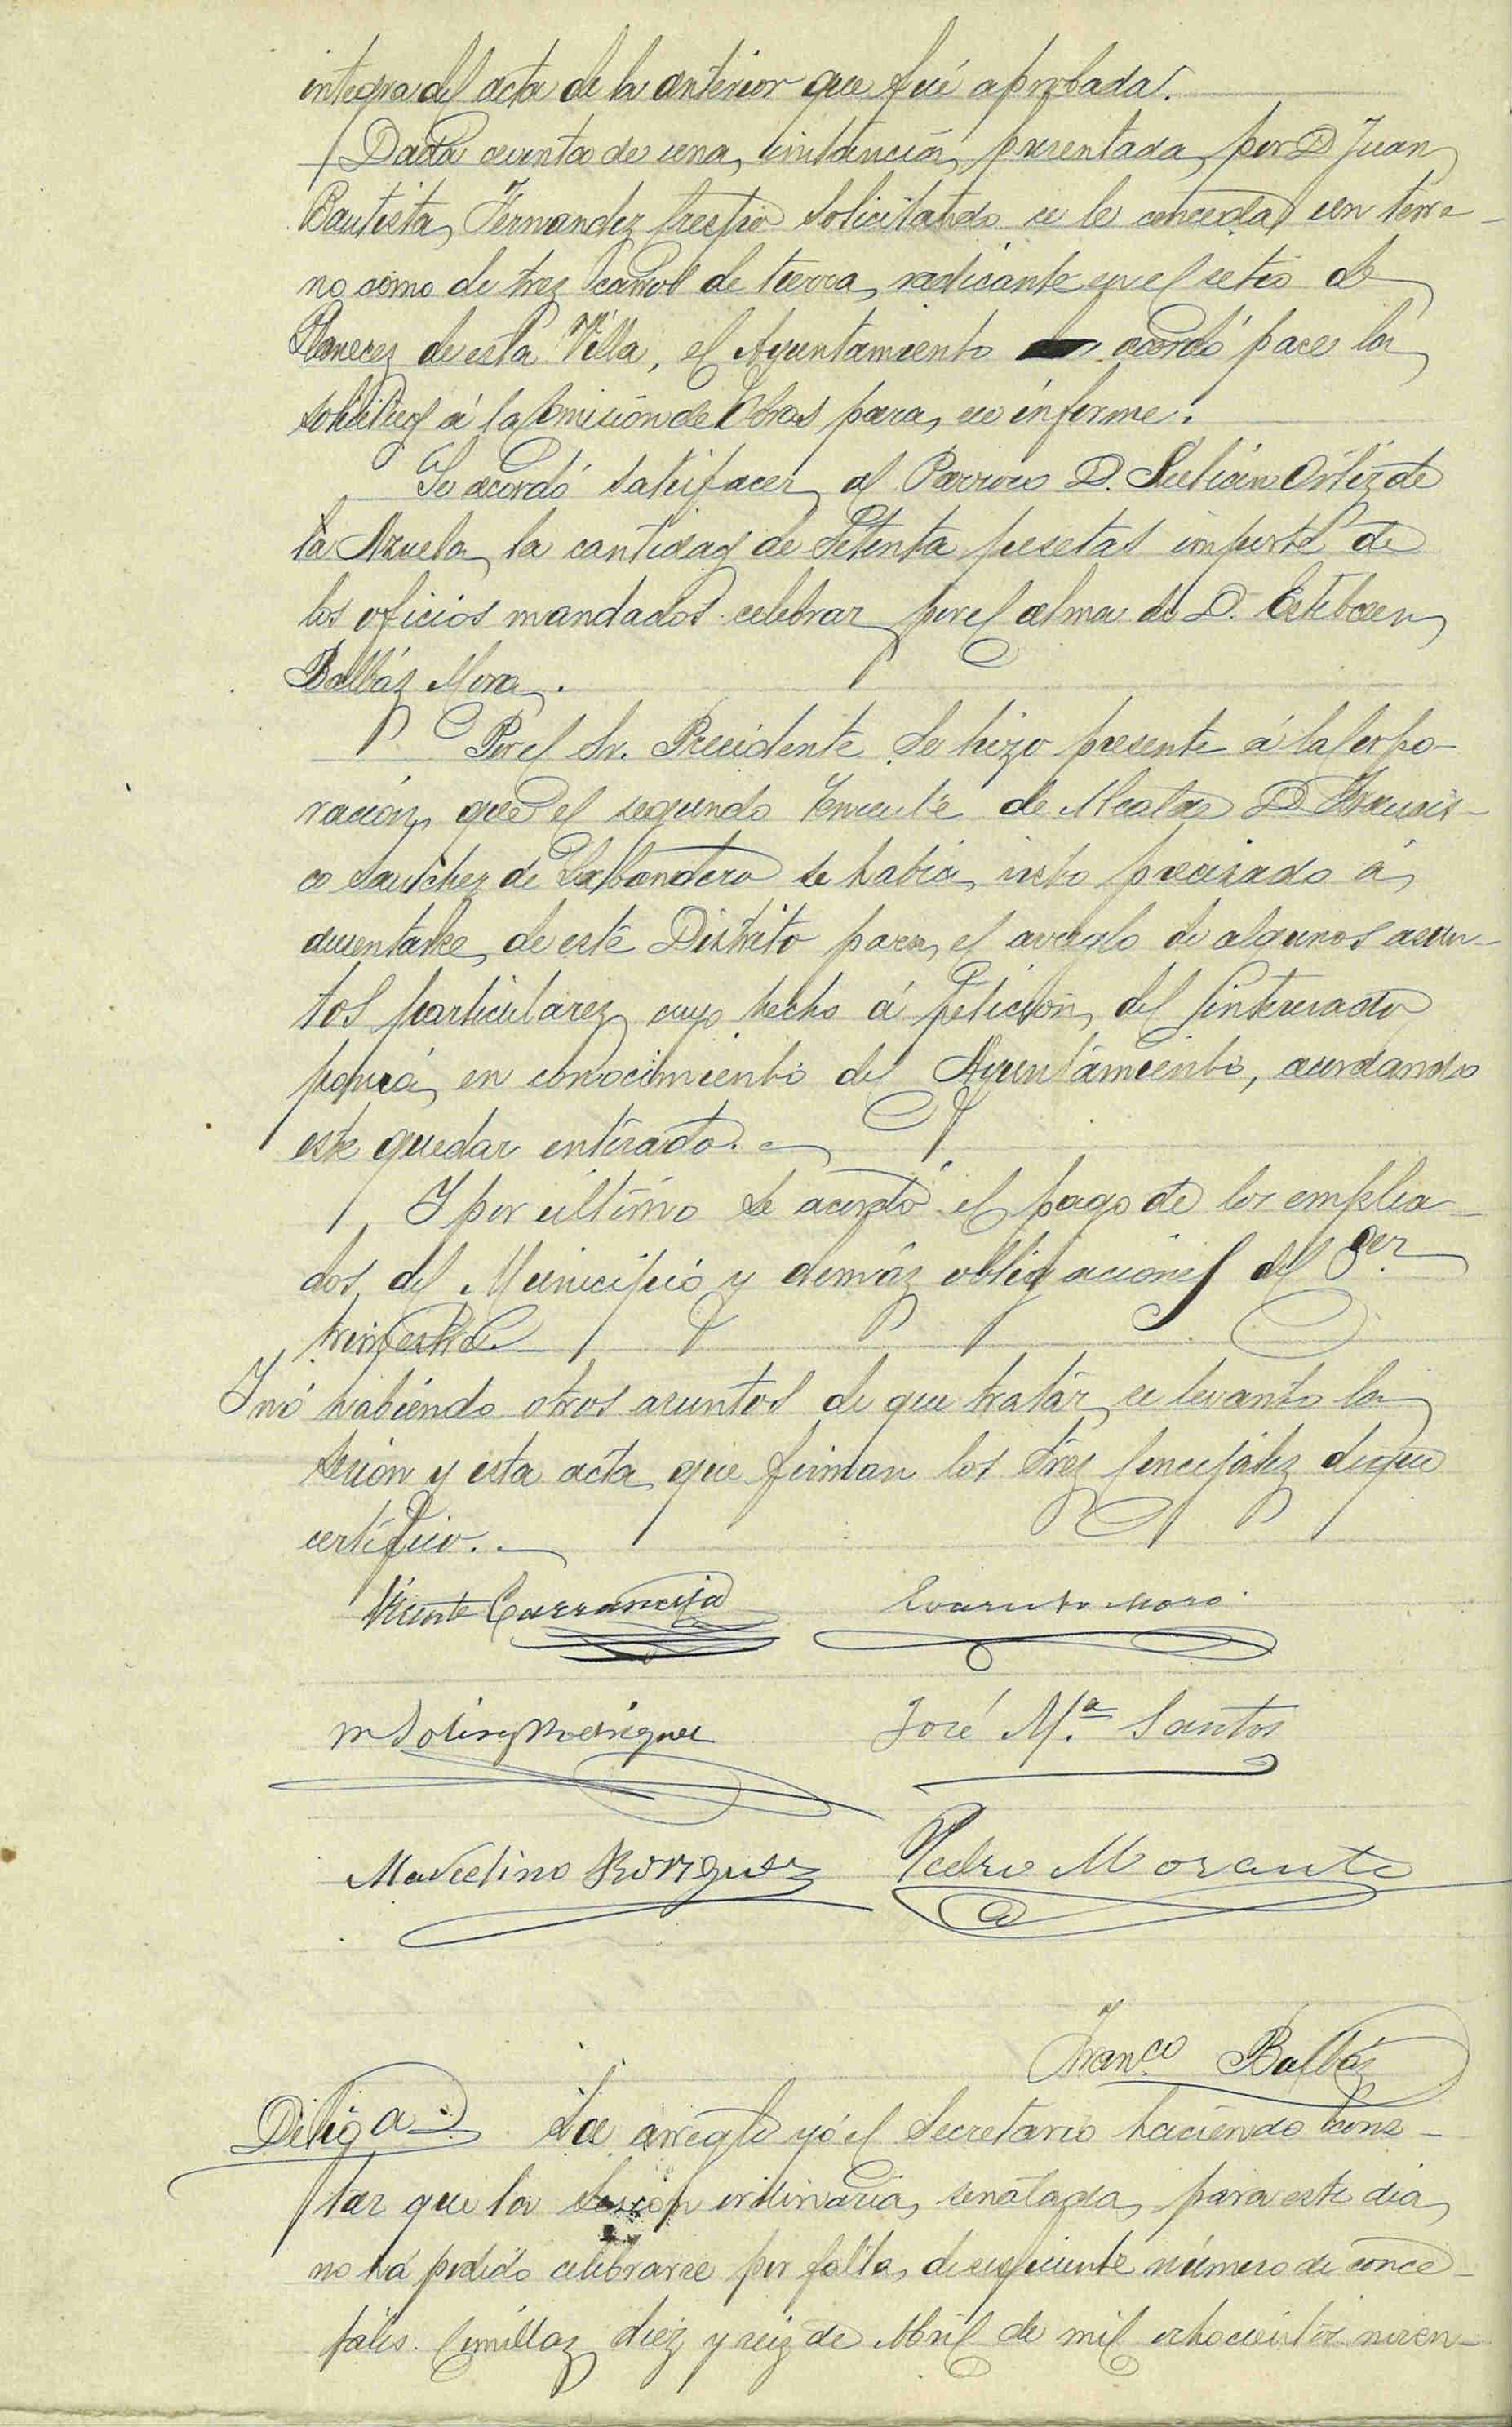 integra del acta de la anterior que fué aprobada.
Dada cuenta de una instancia presentada por D Juan
Bautista Fernandez Crespo solicitando se le conceda un terre-
no como de trez carros de tierra radicante en el setio de
de esta Villa, el Ayuntamiento acordó pace la
solicitud á la Comición de Obras para su informe.
Se acordó satisfacer al Parroco D. Julián Ortiz de
la Azuela la cantidad de Setenta pesetas importe de
los oficios mandados celebrar por el alma de D. Esteban
Balbáz Mora.
Por el Sr. Precidente se hizo presente á la Corpo-
ración que el segundo Teniente de Alcalde D Francis-
co Sanchez de Labandero se habia visto precisado á
ausentarse de este Distrito para el areglo de algunos asun-
tos particularez cuyo hecho á petición del interesado
ponia en conocimiento del Ayuntamiento, acordando
este quedar enterado.
Y por último se acordó el pago de los emplea-
dos del Municipio y demáz obligaciones del 3er
trimestre.
Y nó habiendo otros asuntos de que tratár se levanto la
sesión y esta acta que firman los Srez Concejalez de que
certifico.
Vicente Carranceja Evaristo Moro
M Soliz Rodriguez José M.ª Santos
Marcelino Rodriguez Pedro Morante
Franco Balbáz
Diliga La arreglo yó el Secretario haciendo cons-
tar que la Sesión ordinaria senalada para este dia
no há podido celebrarse por falta de suficiente número de conce-
jales. Comillaz diez y seiz de Abril de mil ochocientos noven-